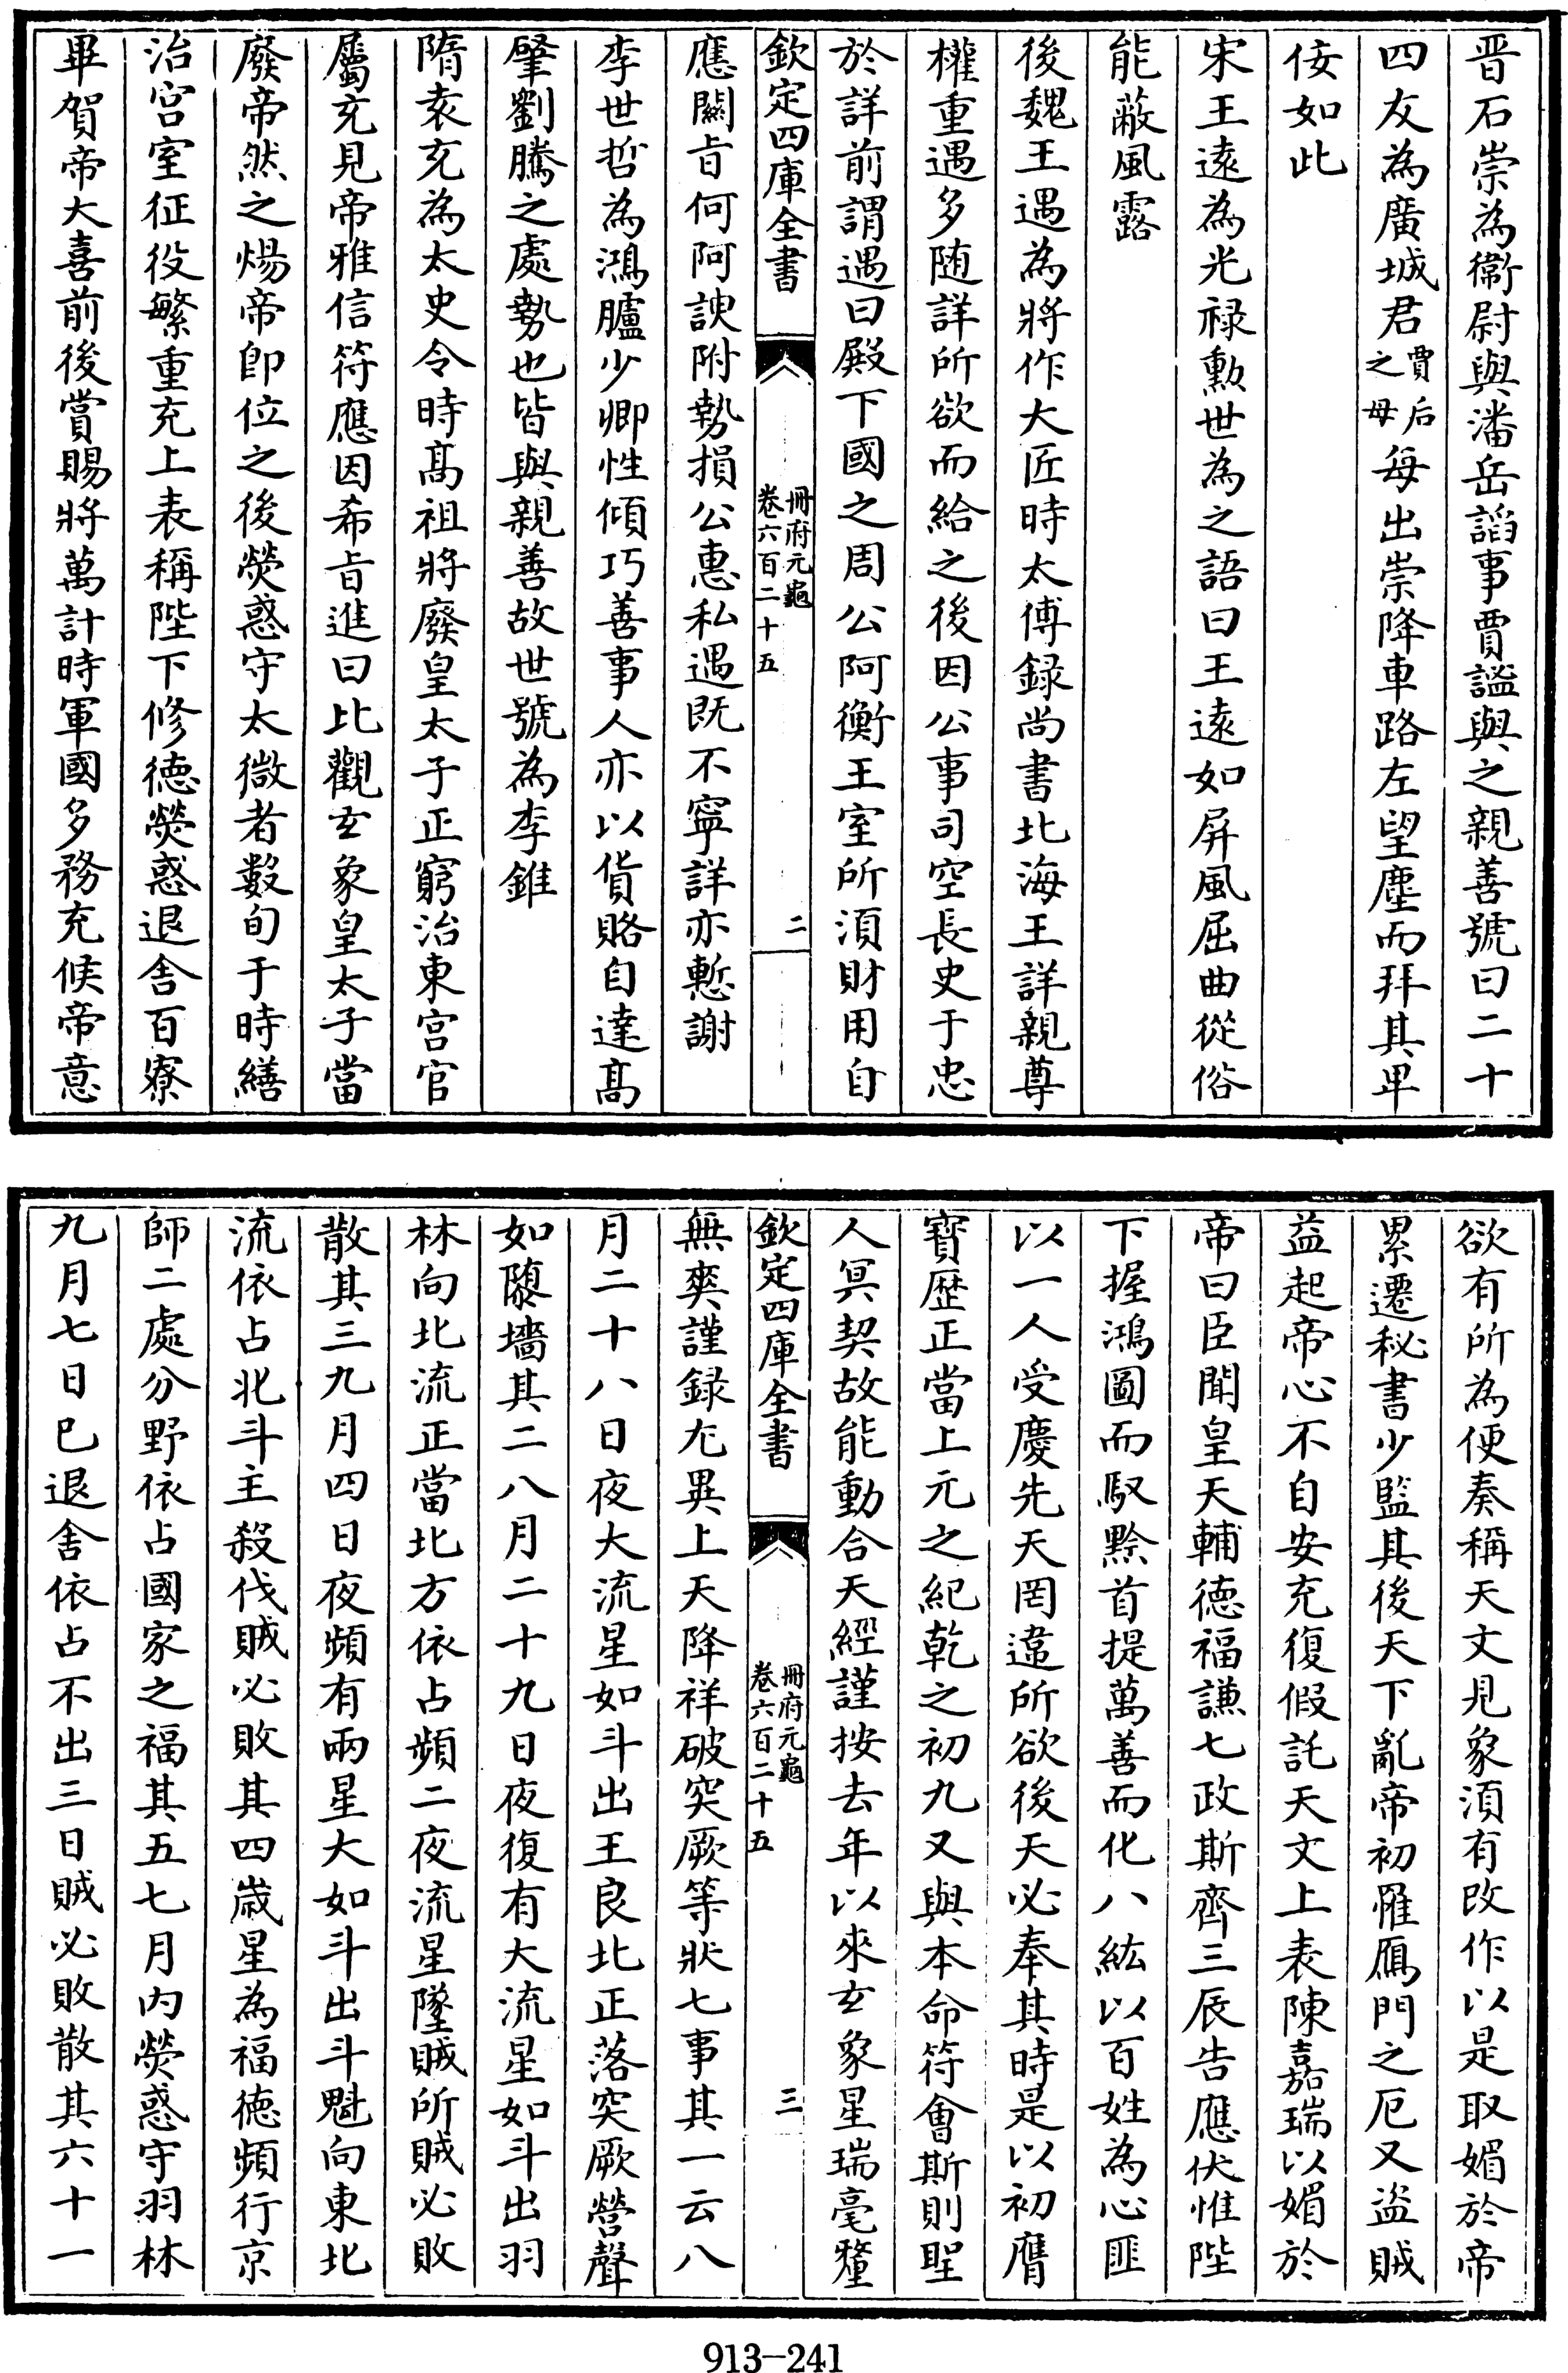 晋石崇為衞尉與潘岳謟事賈謐與之親善號曰二十
四友為廣城君賈后之母每出崇降車路左望塵而拜其卑
佞如此
宋王遠為光禄勲世為之語曰王遠如屏風屈曲從俗
能蔽風露
後魏王遇為將作大匠時太傅録尚書北海王詳親尊
權重遇多随詳所欲而給之後因公事司空長史于忠
於詳前謂遇曰殿下國之周公阿衡王室所湏財用自
欽定四庫全書 冊府元龜 卷六百二十五 二
應關旨何阿諛附勢損公惠私遇既不寧詳亦慙謝
李世哲為鴻臚少卿性傾巧善事人亦以貨賂自達髙
肇劉騰之處勢也皆與親善故世號為李錐
隋袁充為太史令時髙祖將廢皇太子正窮治東宫官
屬充見帝雅信符應因希旨進曰比觀𤣥象皇太子當
廢帝然之煬帝卽位之後熒惑守太微者數旬于時繕
治宫室征役繁重充上表稱陛下修徳熒惑退舎百寮
畢賀帝大喜前後賞賜將萬計時軍國多務充候帝意
欲有所為便奏稱天文見象湏有改作以是取媚於帝
累遷秘書少監其後天下亂帝初罹鴈門之厄又盗賊
益起帝心不自安充復假託天文上表陳嘉瑞以媚於
帝曰臣聞皇天輔徳福謙七政斯齊三辰告應伏惟陛
下握鴻圖而馭黔首提萬善而化八紘以百姓為心匪
以一人受慶先天罔違所欲後天必奉其時是以初膺
寳歴正當上元之紀乾之初九又與本命符㑹斯則聖
人冥契故能動合天經謹按去年以來𤣥象星瑞毫釐
欽定四庫全書 冊府元龜 卷六百二十五 三
無爽謹録尤異上天降祥破突厥等狀七事其一云八
月二十八日夜大流星如斗出王良北正落突厥營聲
如隳墻其二八月二十九日夜復有大流星如斗出羽
林向北流正當北方依占頻二夜流星墜賊所賊必敗
散其三九月四日夜頻有兩星大如斗出斗魁向東北
流依占北斗主殺伐賊必敗其四歲星為福徳頻行京
師二處分野依占國家之福其五七月内熒惑守羽林
九月七日已退舎依占不出三日賊必敗散其六十一
913-241